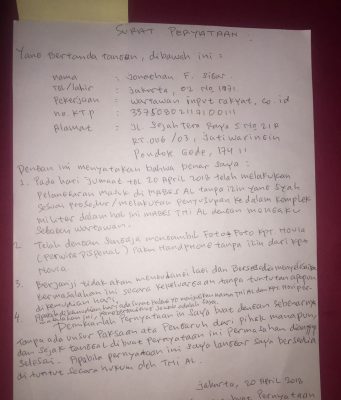 SURAT PERYATAAN :
Yang Bertanda tangan, dibawah ini :
nama : Jonathan F.
TGL/lahir : Jakarta, 02 1971
Pekerjaan : wartawan input rakyat, co. id
no. KTP :
Alamat : JL Sejahtera Raya 5 No 21 A
RT. 006 / 03, Jatiwaringin
Pondok Gede, 17411
Dengan ini menyatakan bahwa benar saya :
1. Pada hari Jumaat TGL 20 April 2018 telah melakukan
Pelanggaran masuk di MABES AL tanpa izin yang syah
sesuai prosedur/melakukan penyusupan ke dalam komplek
militer dalam hal ini MABES TNI AL dengan mengaku
sebagai wartawan.
2 Telah dengan sengaja mengambil Foto2 Kpt. Novia
(Perwira Dispenal) Pakai Handphone tanpa izin dari Kpt
Novia
3. Berjanji tidak akan mengulangi lagi dan Bersedia
Permasalahan ini secara Kekeluargaan tanpa tuntutan apapun
dikemudian hari.
4. Apabila dikemudian hari ada
Demikianlah Pernyataan ini saya buat dengan sebenarnya
Tanpa ada unsur Paksaan atau Pengaruh dari pihak manapun,
dan sejak tanggal di buat pernyataan ini Permasalahan dianggap
selesai. Apabila pernyataan ini saya langgar saya bersedia
di tuntut secara hukum oleh TNI AL.
Jakarta, 20 April 2018
buat Pernyataan